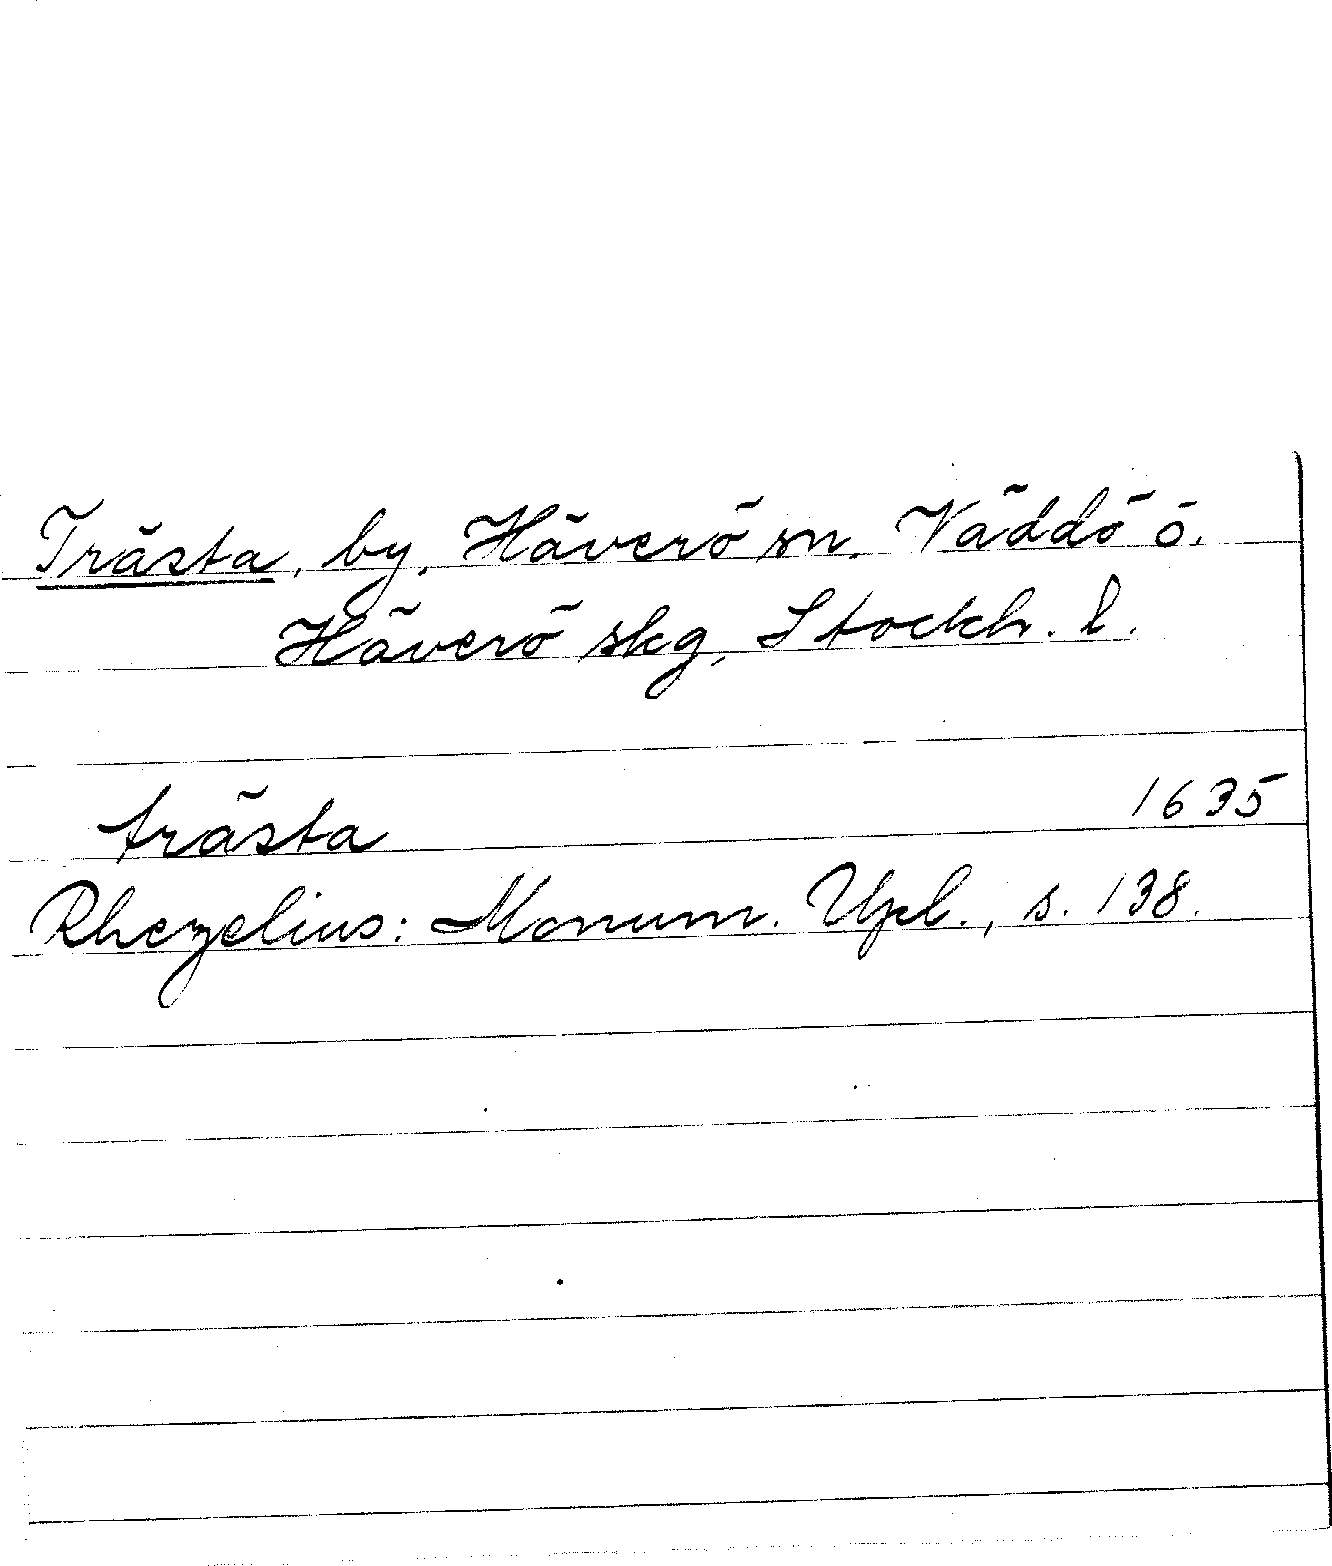 Trästa, by, Häverö sn. Väddö ö.
Häverö skg, Stockh. l.
trästa 1635
Rhezelius: Monum. Upl., s. 138.